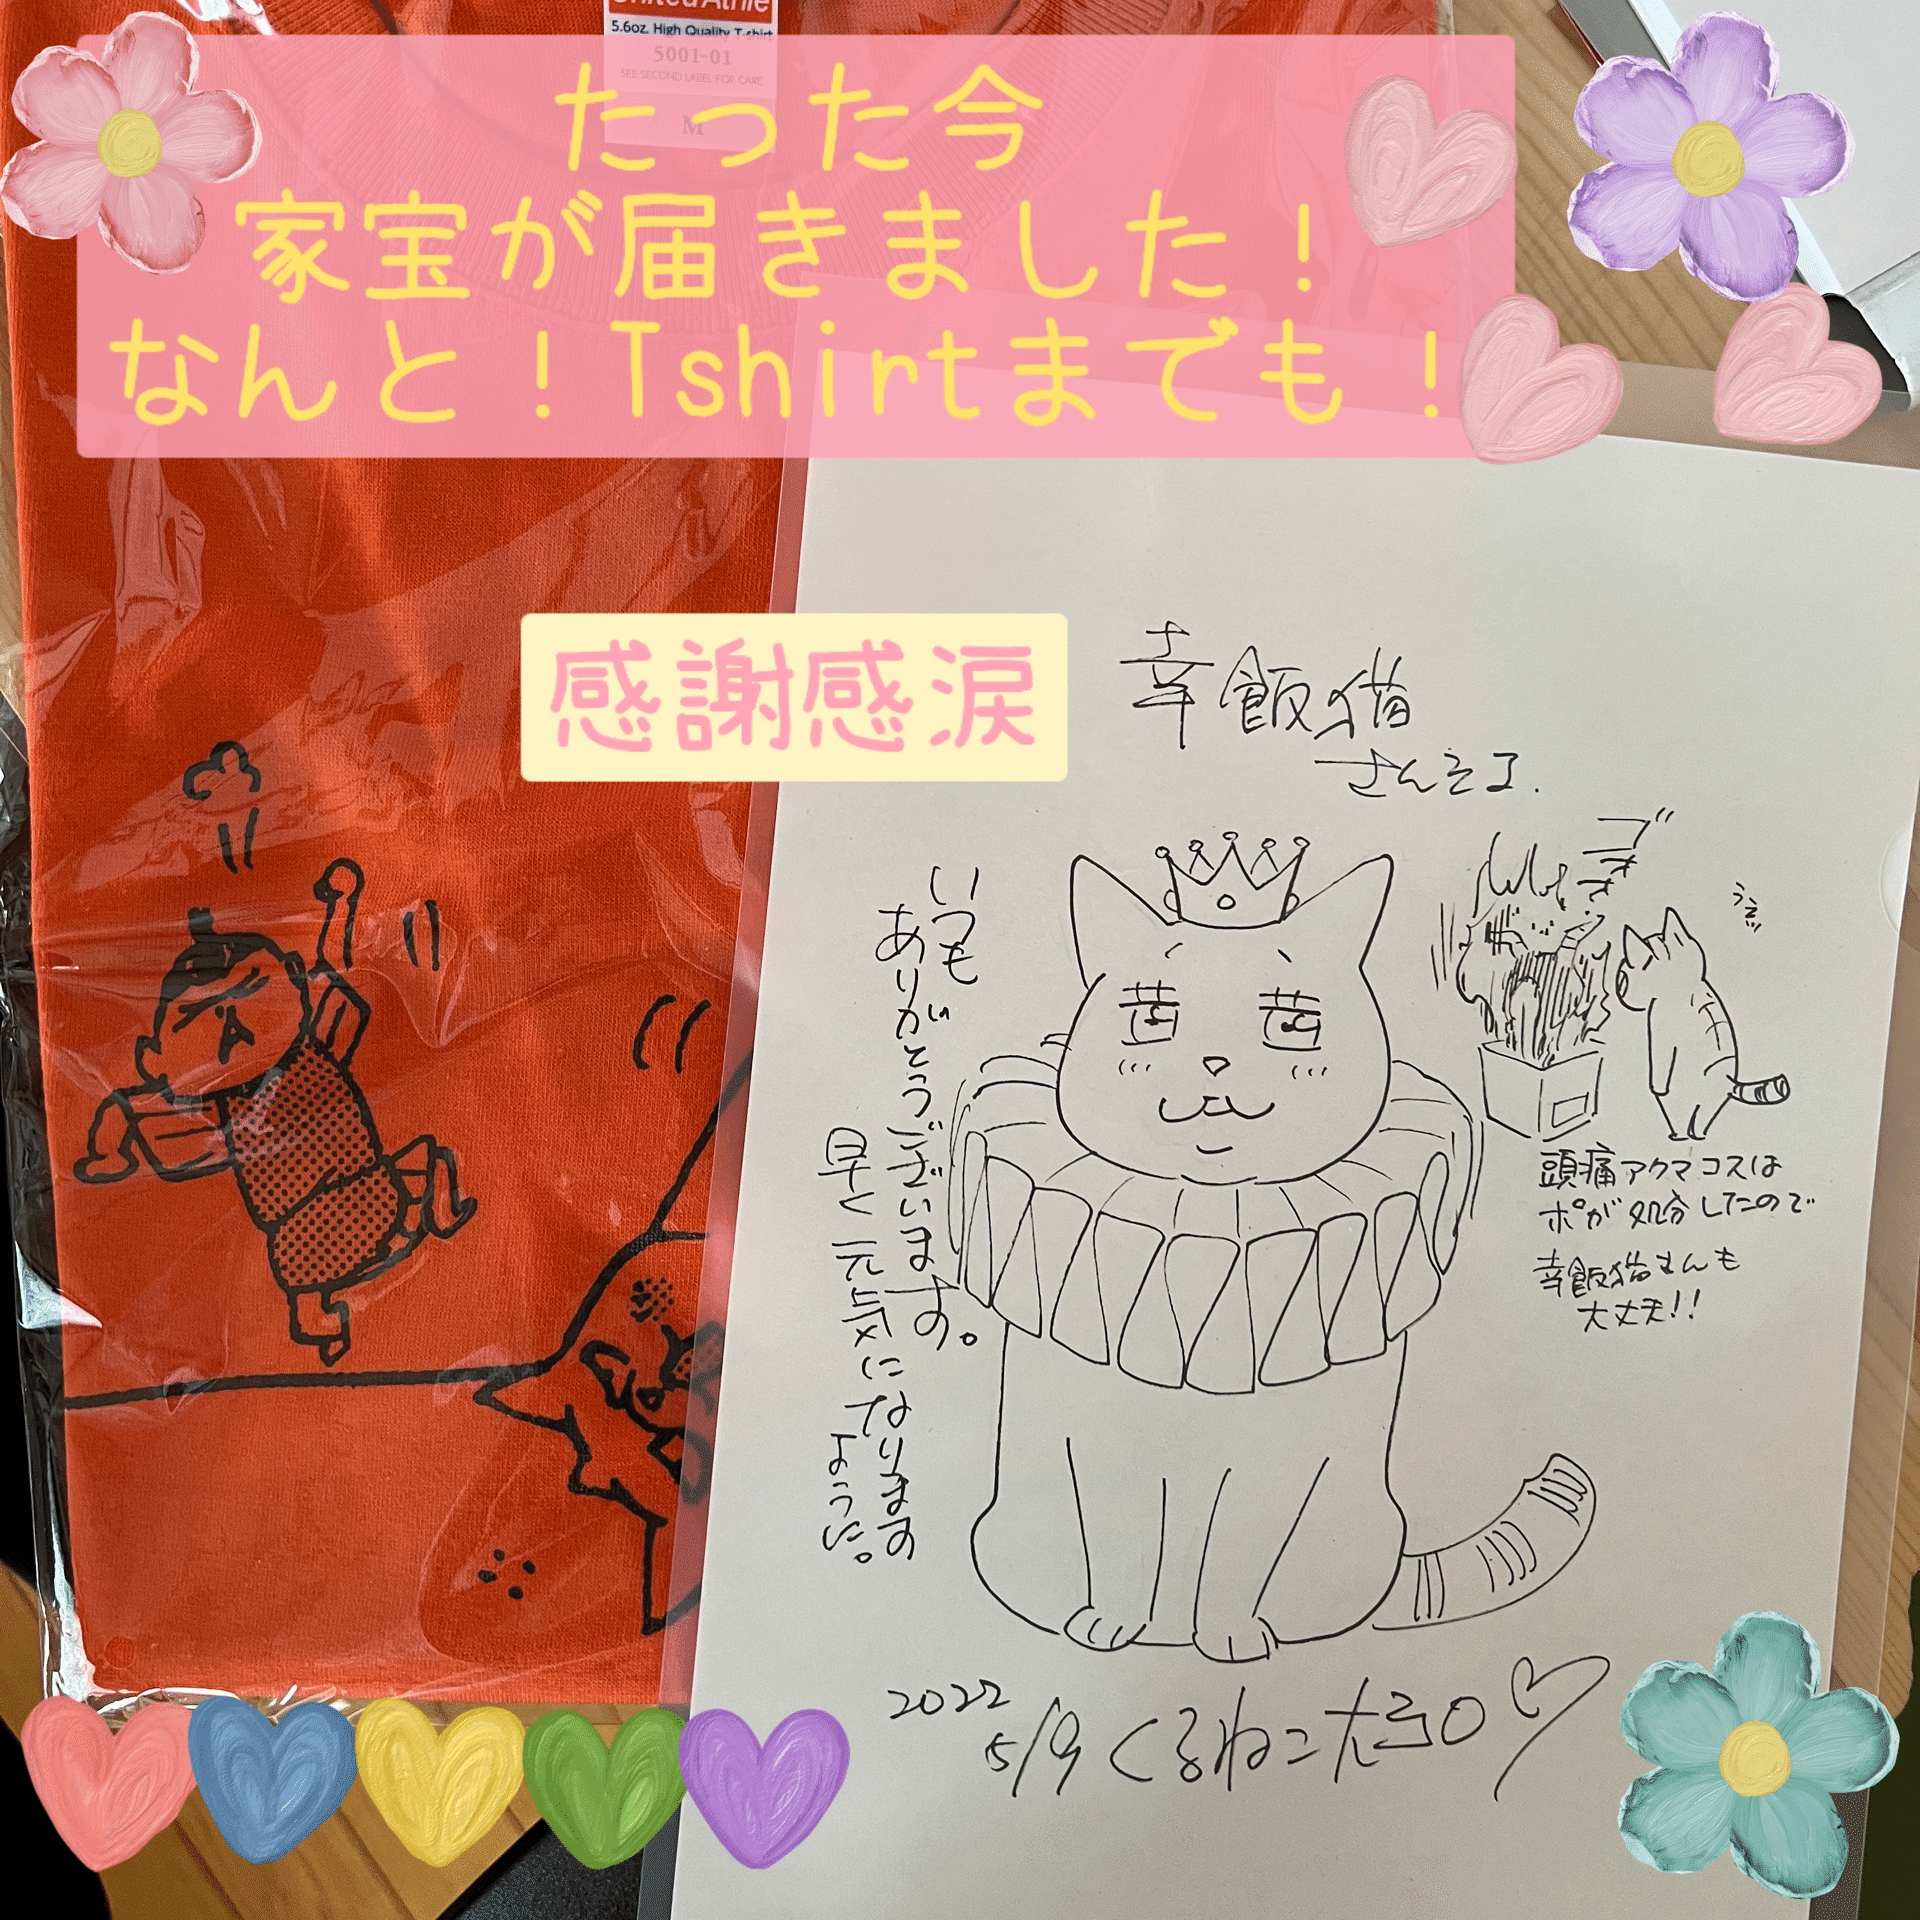 United Athle
5.6oz. High Quality T-shirt
5001-01
SEE SECOND LABEL FOR CARE
M
たった今
家宝が届きました！
なんと！Tshirtまでも！
感謝感涙
幸飯猫
さんえ
いつも
ありがとうございます。
早く元気になります
ように。
茜 茜
頭痛アクマコスは
ポが処分したので
幸飯猫さんも
大丈夫!!
2022
5/9 くるねこ大和